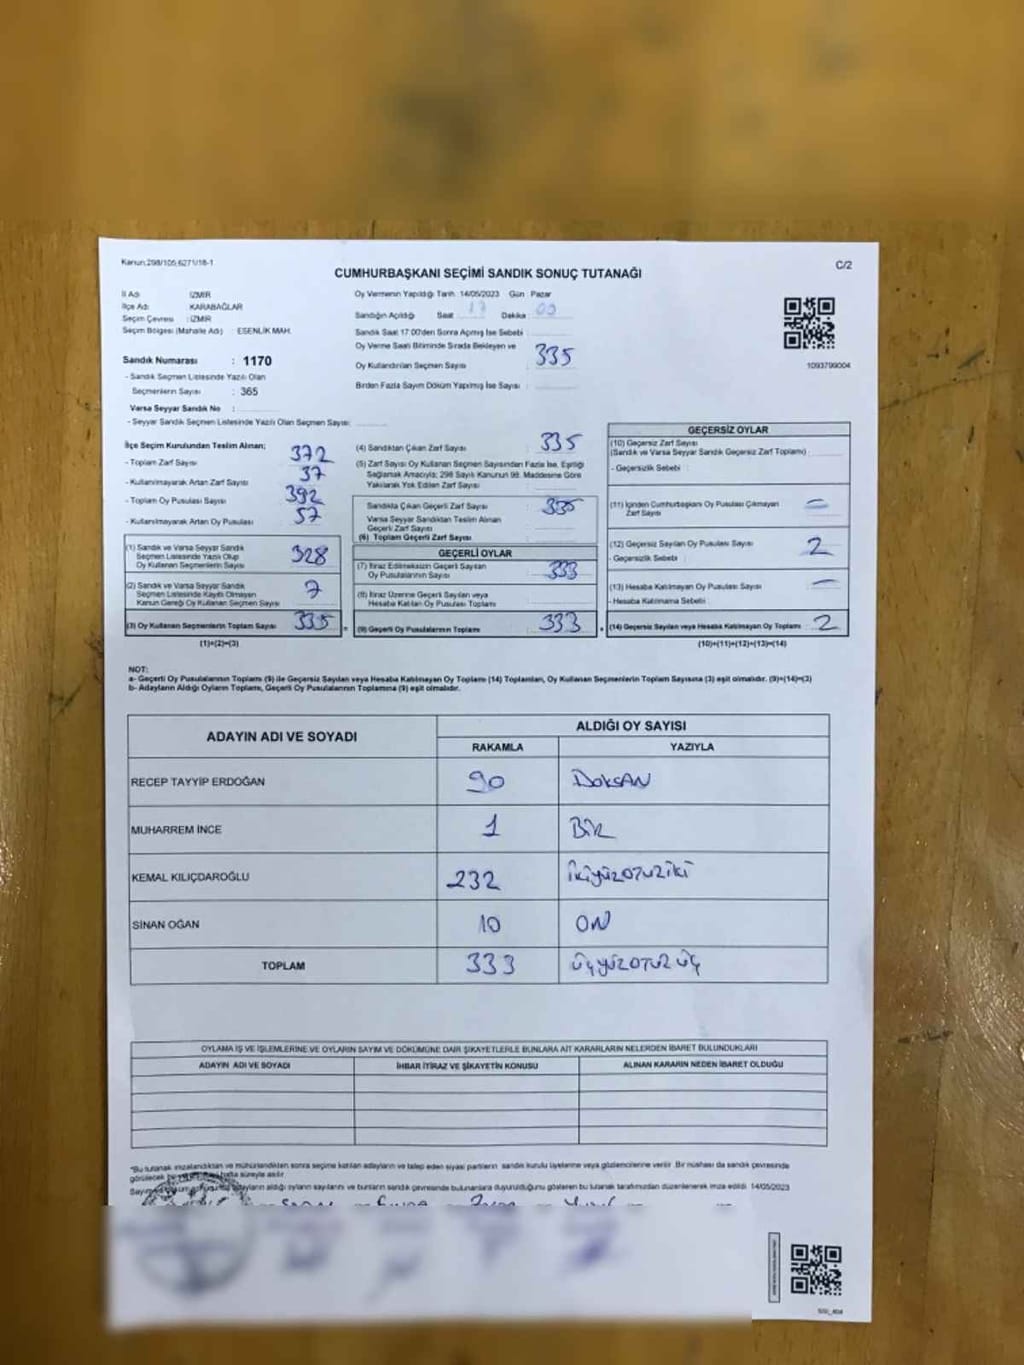 Kanun:298/105,6271/18-1
C/2
CUMHURBAŞKANI SEÇİMİ SANDIK SONUÇ TUTANAĞI
İl Adı : İZMİR
İlçe Adı : KARABAĞLAR
Seçim Çevresi : İZMİR
Seçim Bölgesi (Mahalle Adı) : ESENLİK MAH.
Oy Vermenin Yapıldığı Tarih :14/05/2023 Gün : Pazar
Sandığın Açıldığı Saat : 17 Dakika : 00
Sandık Saat 17:00'den Sonra Açılmış İse Sebebi :
Oy Verme Saati Bitiminde Sırada Bekleyen ve
Oy Kullandırılan Seçmen Sayısı : 335
Birden Fazla Sayım Döküm Yapılmış İse Sayısı :
1093799004
Sandık Numarası : 1170
- Sandık Seçmen Listesinde Yazılı Olan
Seçmenlerin Sayısı : 365
Varsa Seyyar Sandık No :
- Seyyar Sandık Seçmen Listesinde Yazılı Olan Seçmen Sayısı:
İlçe Seçim Kurulundan Teslim Alınan;
- Toplam Zarf Sayısı 372
- Kullanılmayarak Artan Zarf Sayısı 37
- Toplam Oy Pusulası Sayısı 392
- Kullanılmayarak Artan Oy Pusulası 57
(1) Sandık ve Varsa Seyyar Sandık
Seçmen Listesinde Yazılı Olup
Oy Kullanan Seçmenlerin Sayısı 328
(2) Sandık ve Varsa Seyyar Sandık
Seçmen Listesinde Kayıtlı Olmayan
Kanun Gereği Oy Kullanan Seçmen Sayısı 7
(3) Oy Kullanan Seçmenlerin Toplam Sayısı 335
(1)+(2)=(3)
(4) Sandıktan Çıkan Zarf Sayısı : 335
(5) Zarf Sayısı Oy Kullanan Seçmen Sayısından Fazla İse, Eşitliği
Sağlamak Amacıyla; 298 Sayılı Kanunun 98. Maddesine Göre
Yakılarak Yok Edilen Zarf Sayısı
Sandıkta Çıkan Geçerli Zarf Sayısı : 335
Varsa Seyyar Sandıktan Teslim Alınan
Geçerli Zarf Sayısı
(6) Toplam Geçerli Zarf Sayısı
GEÇERLİ OYLAR
(7) İtiraz Edilmeksizin Geçerli Sayılan
Oy Pusulalarının Sayısı 333
(8) İtiraz Üzerine Geçerli Sayılan veya
Hesaba Katılan Oy Pusulası Toplamı
(9) Geçerli Oy Pusulalarının Toplamı 333
GEÇERSİZ OYLAR
(10) Geçersiz Zarf Sayısı
(Sandık ve Varsa Seyyar Sandık Geçersiz Zarf Toplamı)
- Geçersizlik Sebebi :
(11) İçinden Cumhurbaşkanı Oy Pusulası Çıkmayan
Zarf Sayısı
(12) Geçersiz Sayılan Oy Pusulası Sayısı 2
- Geçersizlik Sebebi :
(13) Hesaba Katılmayan Oy Pusulası Sayısı –
- Hesaba Katılmama Sebebi
(14) Geçersiz Sayılan veya Hesaba Katılmayan Oy Toplamı 2
(10)+(11)+(12)+(13)=(14)
NOT:
a- Geçerli Oy Pusulalarının Toplamı (9) ile Geçersiz Sayılan veya Hesaba Katılmayan Oy Toplamı (14) Toplamları, Oy Kullanan Seçmenlerin Toplam Sayısına (3) eşit olmalıdır. (9)+(14)=(3)
b- Adayların Aldığı Oyların Toplamı, Geçerli Oy Pusulalarının Toplamına (9) eşit olmalıdır.
ADAYIN ADI VE SOYADI
ALDIĞI OY SAYISI
RAKAMLA YAZIYLA
RECEP TAYYİP ERDOĞAN 90 DOKSAN
MUHARREM İNCE 1 BİR
KEMAL KILIÇDAROĞLU 232 İKİYÜZOTUZİKİ
SİNAN OĞAN 10 ON
TOPLAM 333 ÜÇYÜZOTUZ ÜÇ
OYLAMA İŞ VE İŞLEMLERİNE VE OYLARIN SAYIM VE DÖKÜMÜNE DAİR ŞİKAYETLERLE BUNLARA AİT KARARLARIN NELERDEN İBARET BULUNDUKLARI
ADAYIN ADI VE SOYADI İHBAR İTİRAZ VE ŞİKAYETİN KONUSU ALINAN KARARIN NEDEN İBARET OLDUĞU
"Bu tutanak imzalandıktan ve mühürlendikten sonra seçime katılan adayların ve talep eden siyasi partilerin sandık kurulu üyelerine veya gözlemcilerine verilir. Bir nüshası da sandık çevresinde
görülecek hafta süreyle asılır.
adayların aldığı oyların sayılarını ve bunların sandık çevresinde bulunanlara duyurulduğunu gösteren bu tutanak tarafımızdan düzenlenerek imza edildi. 14/05/2023